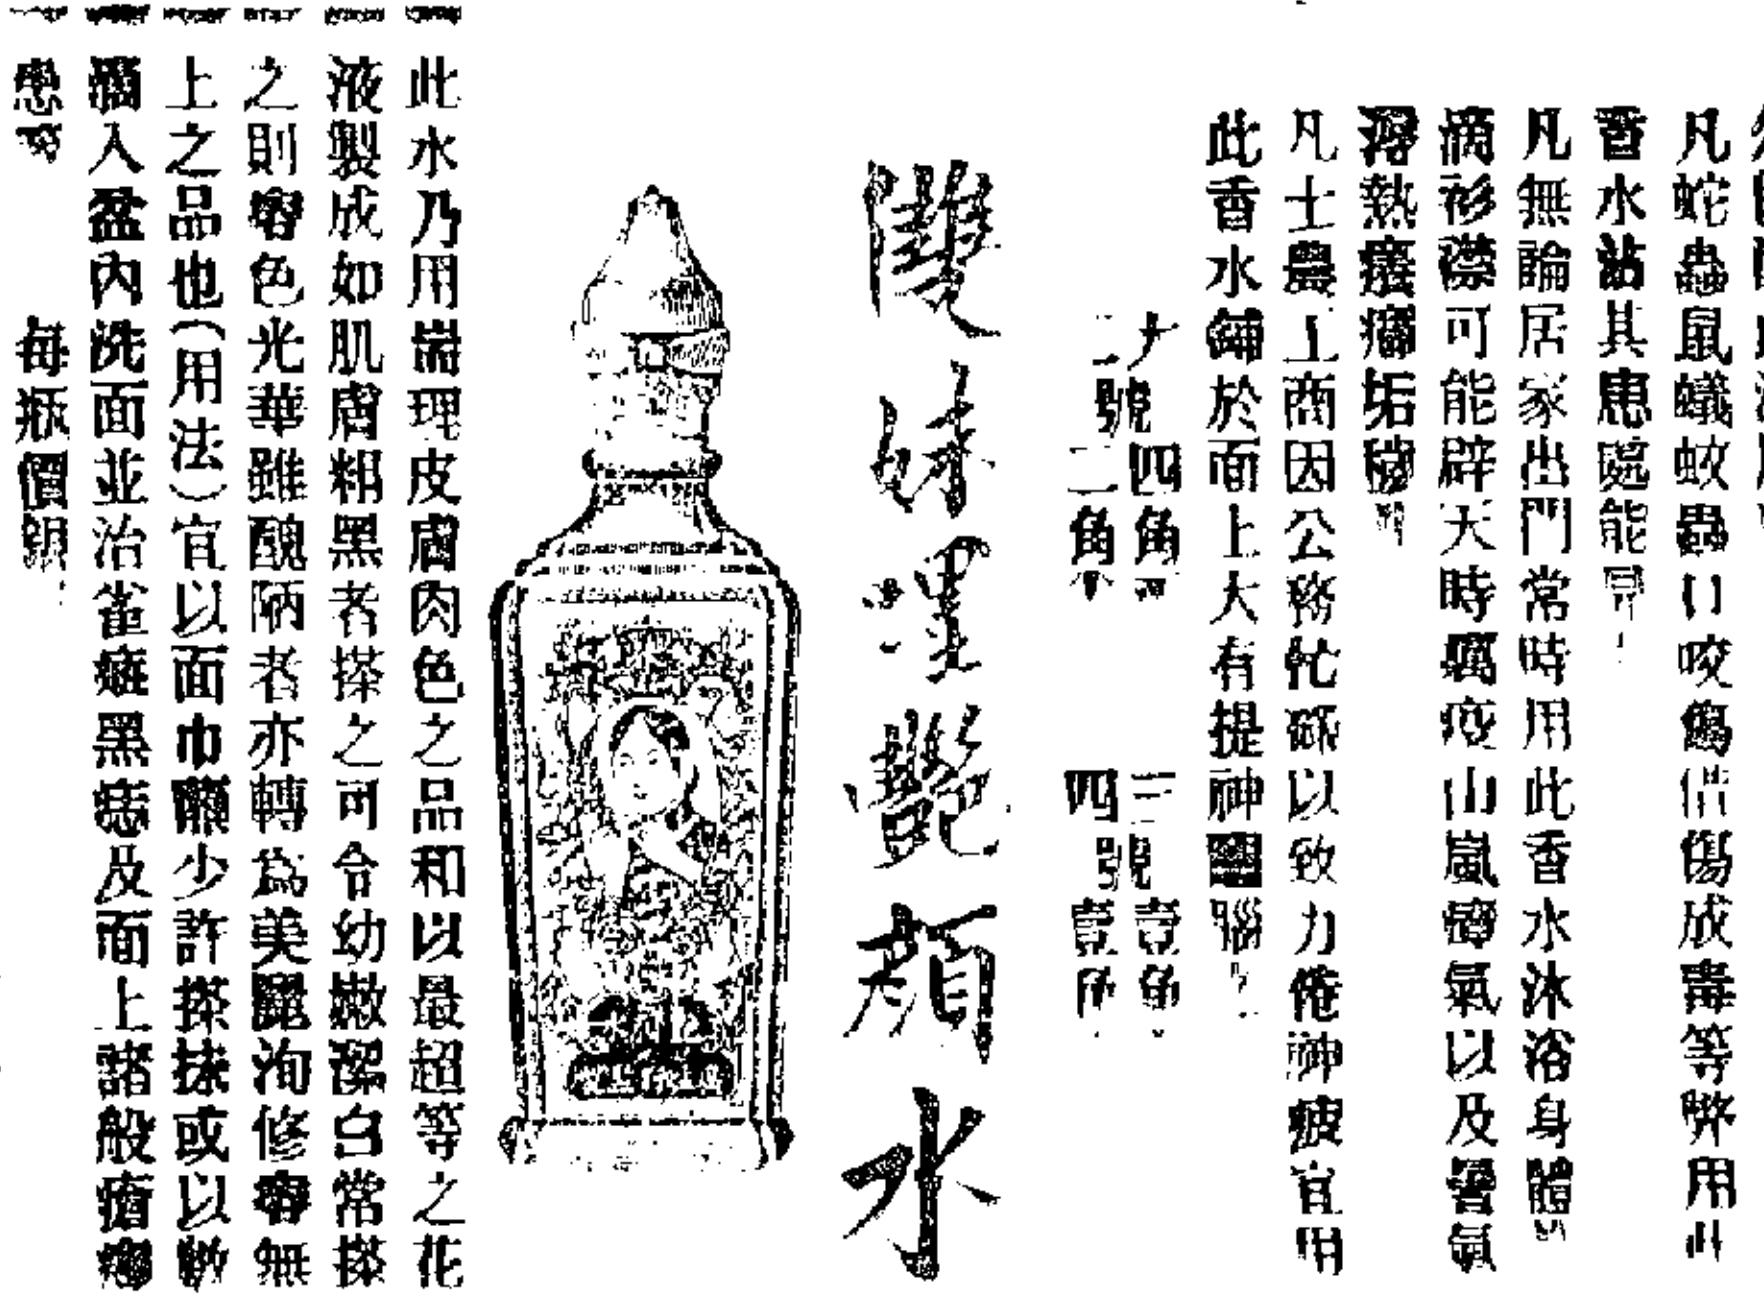 凡蛇蟲鼠蟻蚊蟲口咬傷成毒等弊用此
香水沾其患處能
凡無論居家出門常時用此香水沐浴身體
滴衫襟可能辟天時癘疫山嵐瘴氣以及暑氣
熱垢穢
凡士農工商因公務忙碌以致力倦神疲宜用
此香水鋪於面上大有提神醒腦
四角 三號壹角
二號二角 四號壹角
雙妹嚜艷顏水
此水乃用耑理皮膚肉色之品和以最超等之花
液製成如肌膚粗黑者搽之可令幼嫩潔白常搽
之則容色光華雖醜陋者亦轉為美麗洵修容無
上之品也（用法）宜以面巾蘸少許搽抹或以數
滴入盆內洗面並治雀斑黑痣及面上諸般瘡
患 每瓶價銀